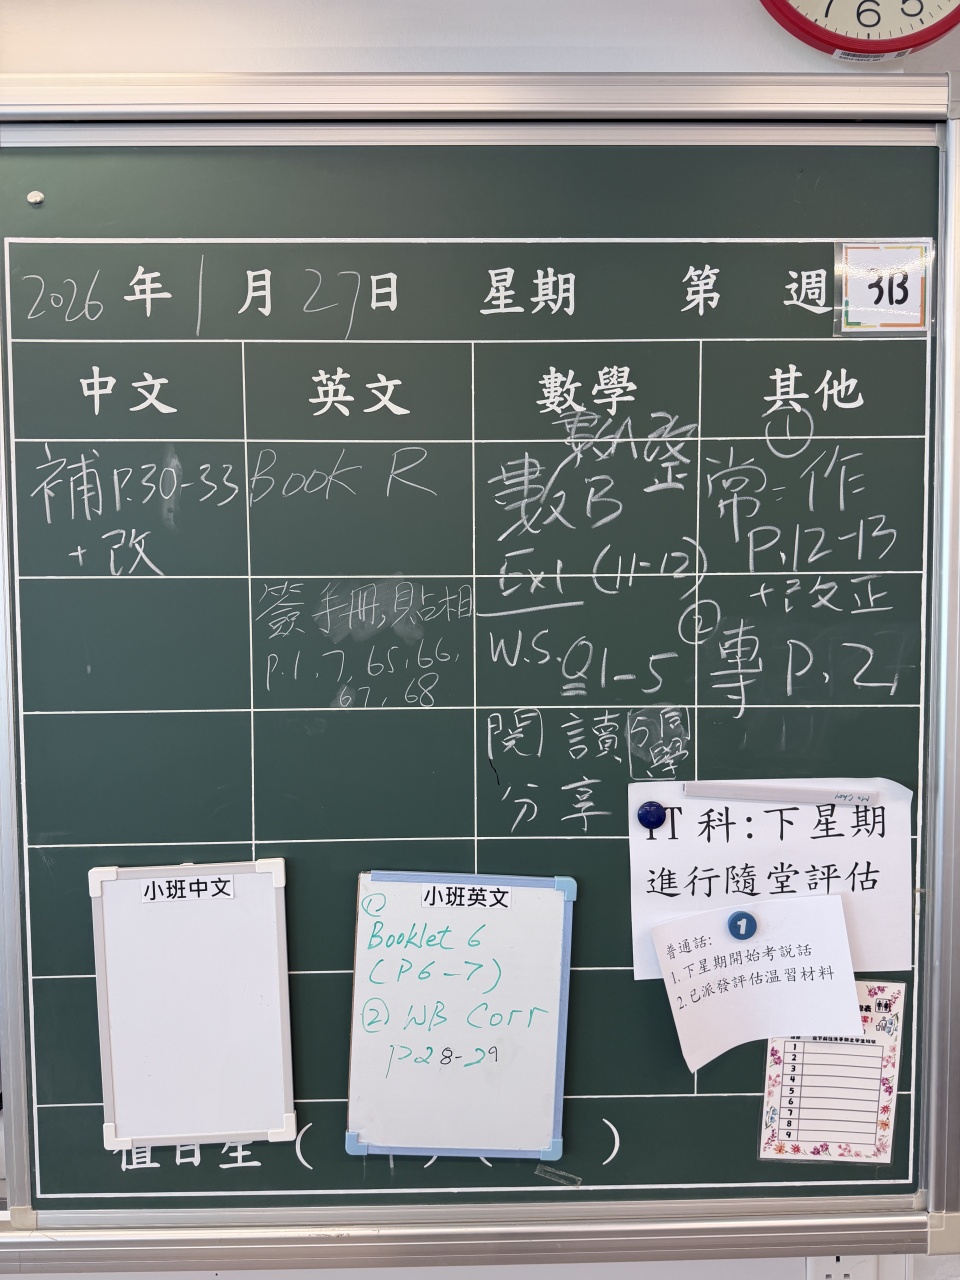 2026年1月27日 星期 第 週 3B
中文 英文 數學 其他
補P.30-33
+改
Book R
簽手冊,貼相
P.1,7,65,66,
67,68
數A改正
數B
Ex1 (11-12)
W.S. Q1-5
閱讀
分享
5同學
①
常:作
P.12-13
+改正
② 專 P.2
IT科:下星期
進行隨堂評估
普通話:
1.下星期開始考説話
2.已派發評估溫習材料
小班中文
小班英文
①
Booklet 6
(P6-7)
② WB Corr
P.28-29
值日生 ( ) ( )
1
2
3
4
5
6
7
8
9
7 6 5